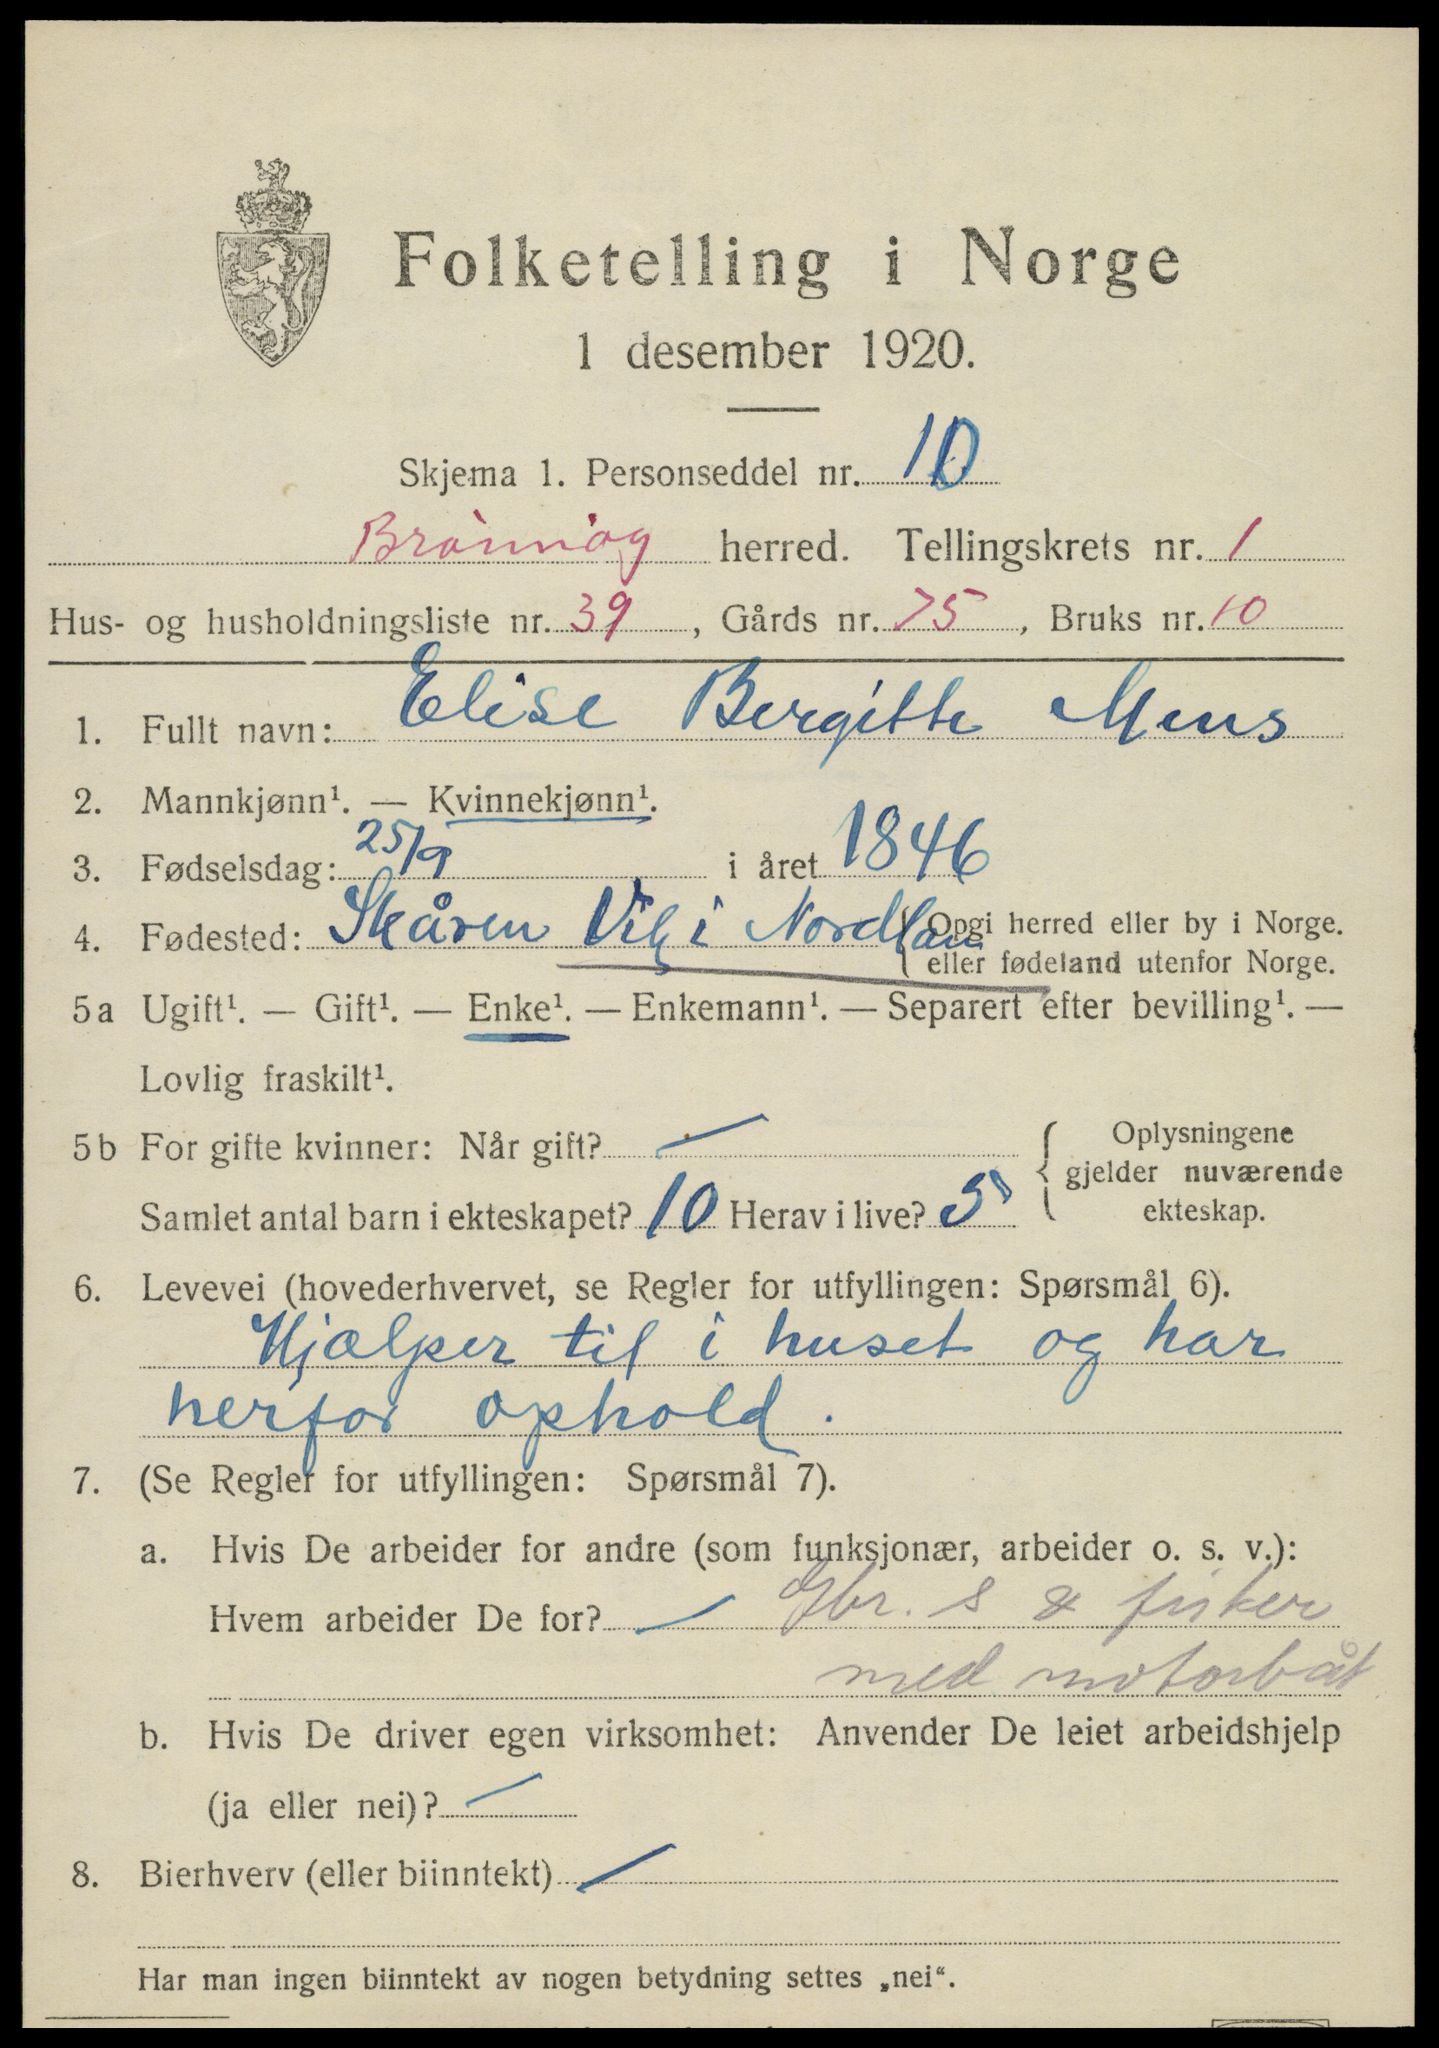 Folketelling i Norge
1 desember 1920.
Skjema 1. Personseddel nr. 10
Brönnöy herred. Tellingskrets nr. 1
Hus- og husholdningsliste nr. 39, Gårds nr. 75, Bruks nr. 10
1. Fullt navn: Elise Bergitte Mens
2. Mannkjønn¹. — Kvinnekjønn¹.
3. Fødselsdag: 25/9 i året 1846
4. Fødested: Skåren Vik i Nordlan {Opgi herred eller by i Norge.
eller fødeland utenfor Norge.
5a Ugift¹. — Gift¹. — Enke¹. — Enkemann¹. — Separert efter bevilling¹. —
Lovlig fraskilt¹.
5b For gifte kvinner: Når gift? —
Samlet antal barn i ekteskapet? 10 Herav i live? 5
{ Oplysningene
gjelder nuværende
ekteskap.
6. Levevei (hovederhvervet, se Regler for utfyllingen: Spørsmål 6).
Hjælper til i huset og har
herfor ophold.
7. (Se Regler for utfyllingen: Spørsmål 7).
a. Hvis De arbeider for andre (som funksjonær, arbeider o. s. v.):
Hvem arbeider De for? — Gbr. S & fisker
med motorbåt
b. Hvis De driver egen virksomhet: Anvender De leiet arbeidshjelp
(ja eller nei)? —
8. Bierhverv (eller biinntekt) —
Har man ingen biinntekt av nogen betydning settes „nei“.